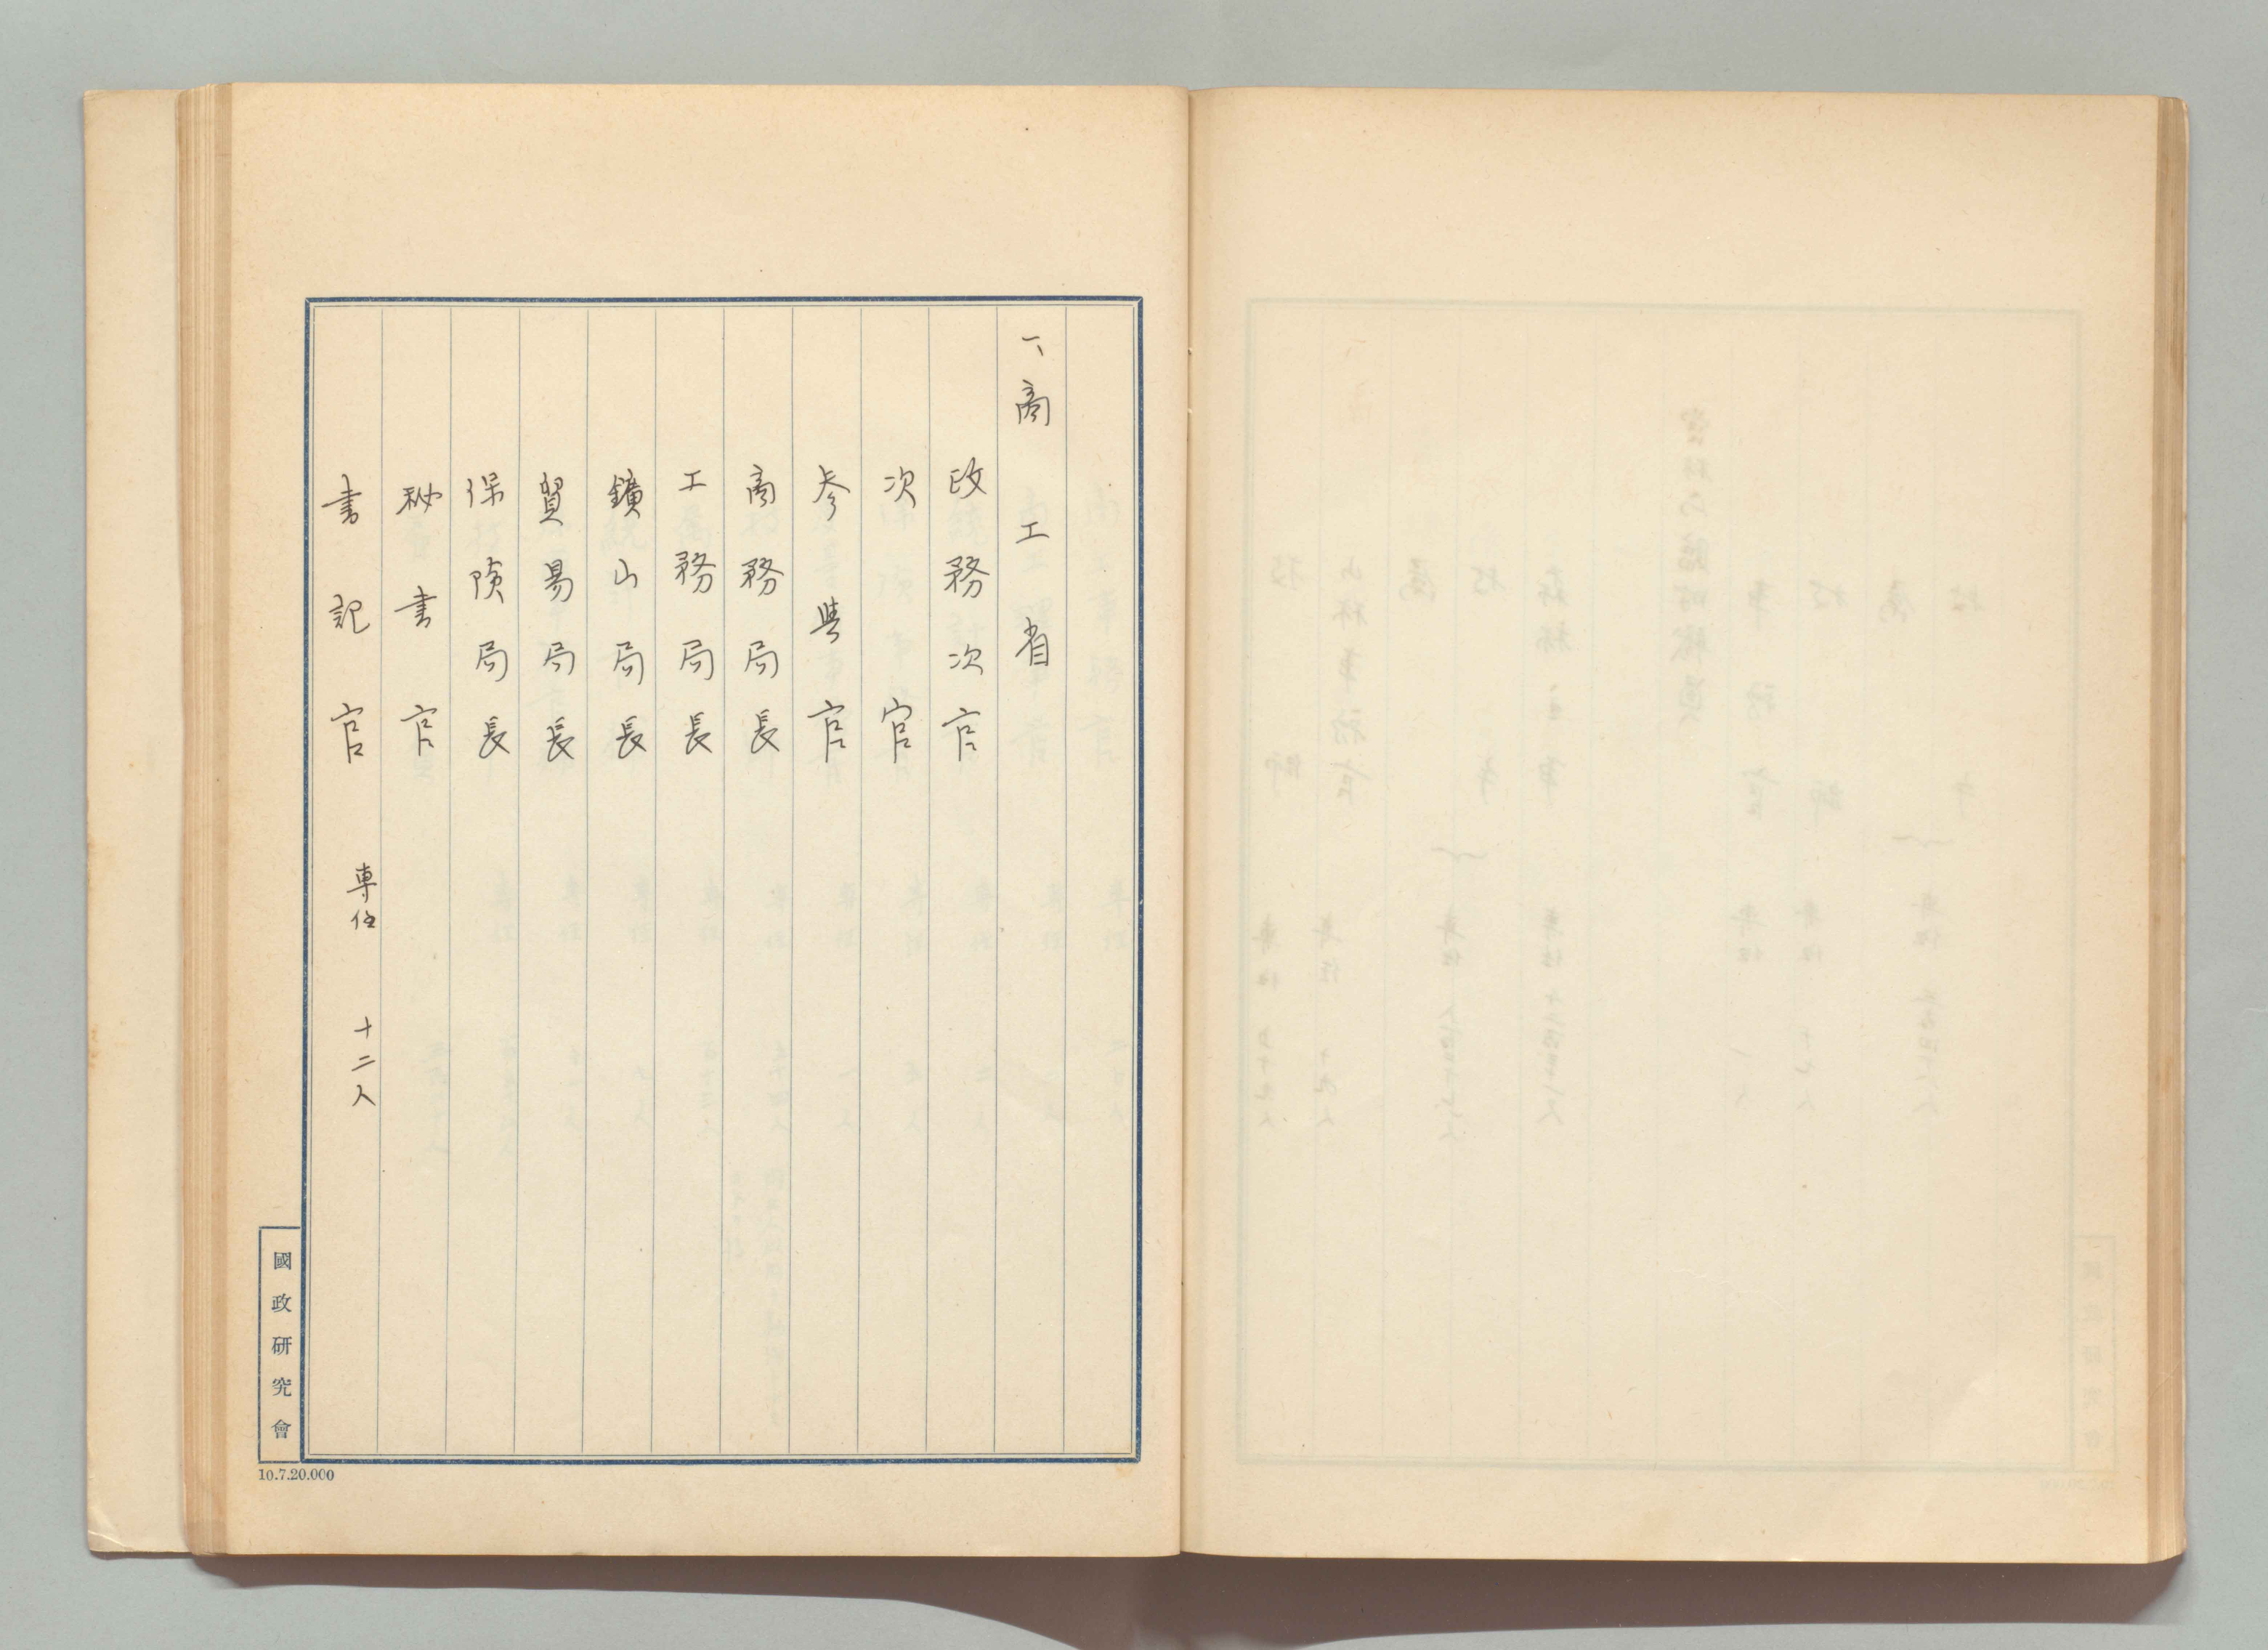 一、商工省
政務次官
次官
参與官
商務局長
工務局長
鑛山局長
貿易局長
保険局長
秘書官
書記官 専任 十二人
國政研究會
10.7.20.000